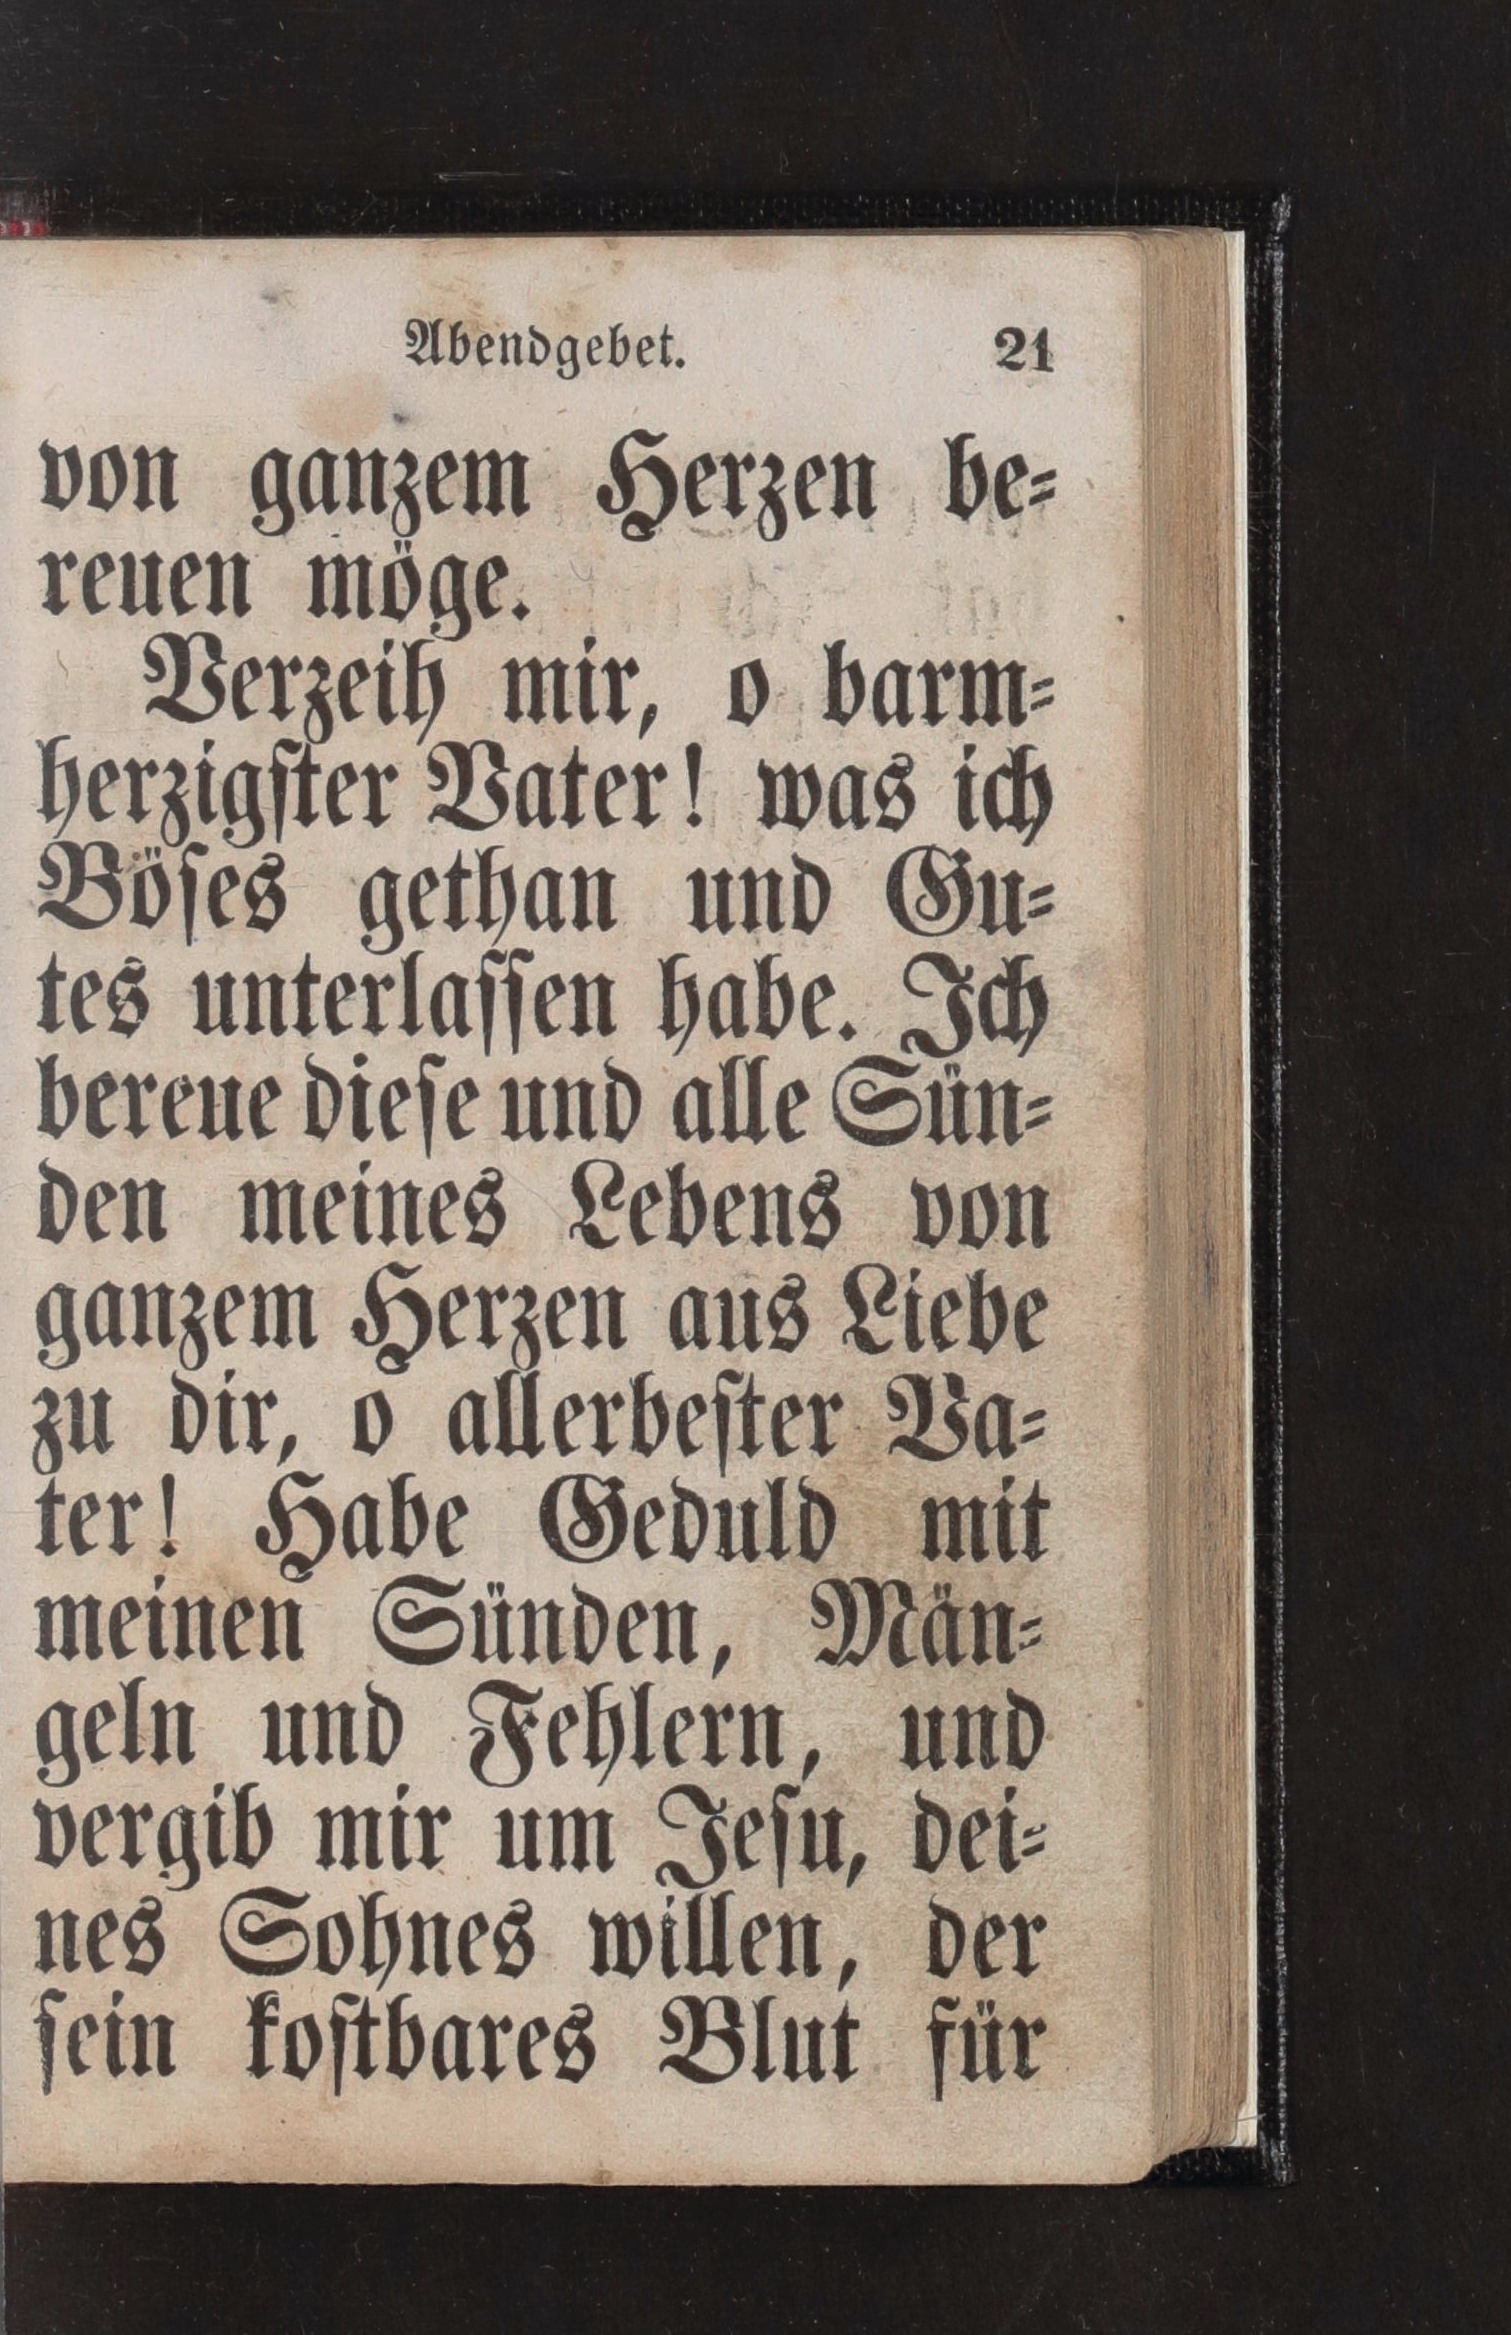 Abendgebet. 21
von ganzem Herzen be⸗
reuen möge.
Verzeih mir, o barm⸗
herzigſter Vater! was ich
Böſes gethan und Gu⸗
tes unterlaſſen habe. Ich
bereue dieſe und alle Sün⸗
den meines Lebens von
ganzem Herzen aus Liebe
zu dir, o allerbeſter Va⸗
ter! Habe Geduld mit
meinen Sünden, Män⸗
geln und Fehlern, und
vergib mir um Jeſu, dei⸗
nes Sohnes willen, der
ſein koſtbares Blut für